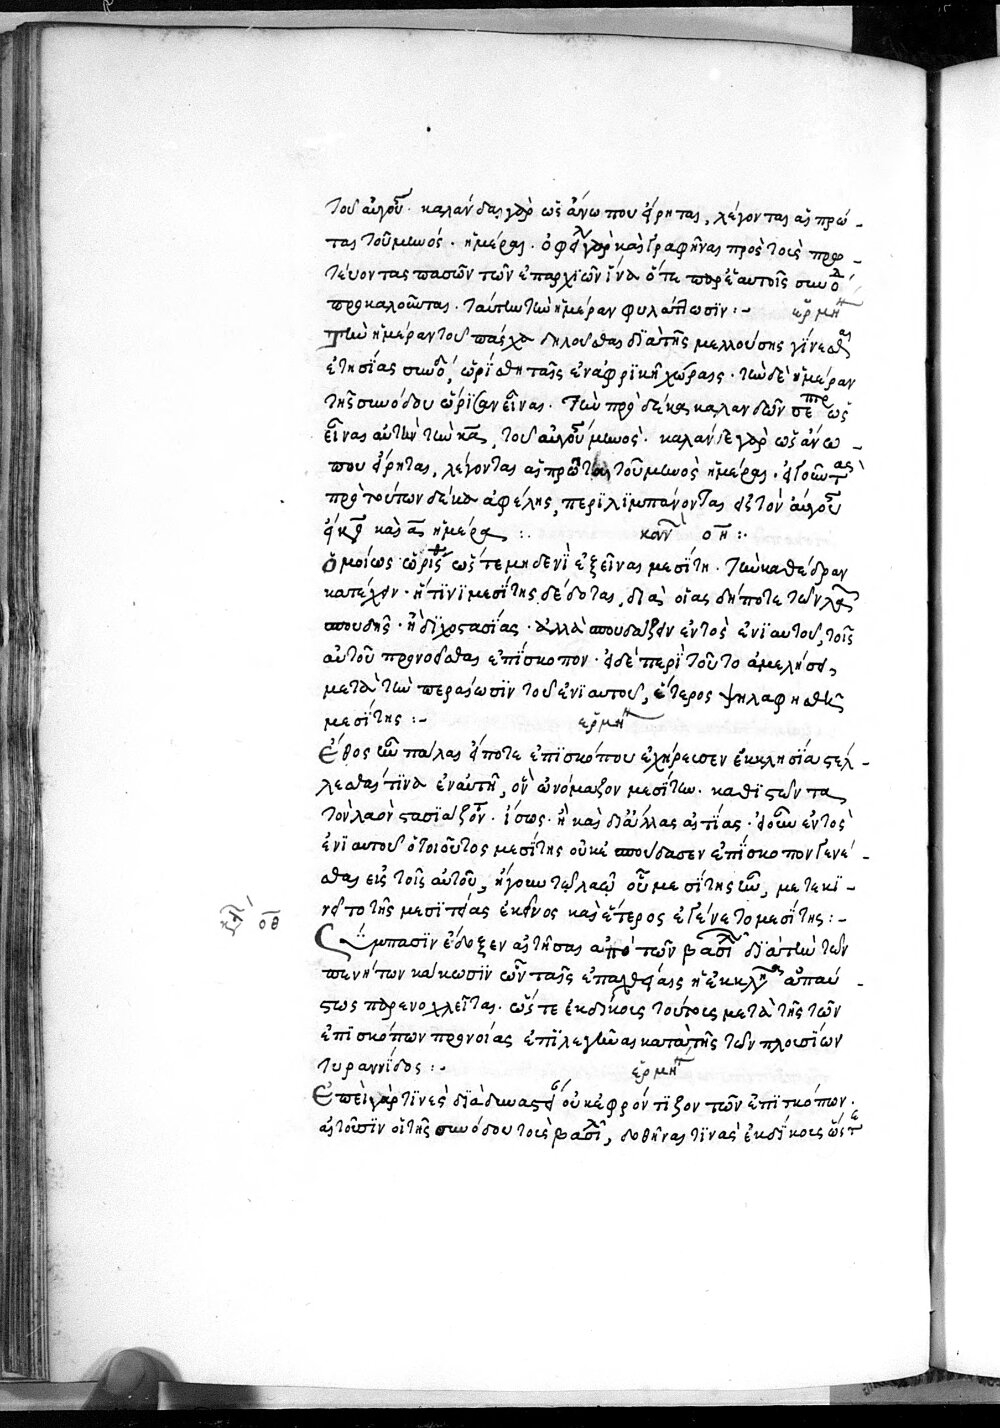 τοῦ αὐγούστου. καλάνδας γὰρ ὡς ἄνω που εἴρηται, λέγονται αἱ πρῶ-
ται τοῦ μηνὸς ἡμέραι. ὀφείλει γὰρ καὶ γραφῆναι πρὸς τοὺς πρω-
τεύοντας πασῶν τῶν ἐπαρχιῶν ἵνα ὅτε παρ' ἑαυτοῖς σύνοδον
προκαλοῦνται. ταύτην τὴν ἡμέραν φυλάττωσιν :- ἑρμη
Τὴν ἡμέραν τοῦ πάσχα δηλοῦσθαι διὰ τῆς μελλούσης γίνεσθαι
ἐτησίας συνόδου, ὡρίσθη ταῖς ἐν ἀφρικῇ χώραις. τὴν δὲ ἡμέραν
τῆς συνόδου ὥρισαν εἶναι. τὴν πρὸ δέκα καλανδῶν σεπτεμβρίων ὡς
εἶναι αὐτὴν τὴν κα, τοῦ αὐγούστου μηνός. καλάνδαι γὰρ ὡς ἄνω
που εἴρηται, λέγονται αἱ πρῶται τοῦ μηνὸς ἡμέραι. εἰ γοῦν τὰς
πρὸ τούτων δέκα ἀφέλῃς, περιλιμπάνονται εἰς τὸν αὔγουστον
εἴκοσι καὶ α ἡμέραι :. κανὼν οη :.
Ὁμοίως ὡρίσθη ὥστε μηδενὶ ἐξεῖναι μεσίτῃ. τὴν καθέδραν
κατέχειν. ἥτινι μεσίτης δέδοται, διὰ οἵας δήποτε τῶν λαῶν
σπουδῆς. ἢ διχοστασίας. ἀλλὰ σπουδάζειν ἐντὸς ἐνιαυτοῦ, τοῖς
αὐτοῦ προνοῆσαι ἐπίσκοπον. εἰ δὲ περὶ τούτο ἀμελήσει,
μετὰ τὴν περαίωσιν τοῦ ἐνιαυτοῦ, ἕτερος ψηλαφηθῇ
μεσίτης :- ἑρμη
Ἔθος ἦν πάλαι εἴποτε ἐπισκόπου ἐχήρευσεν ἐκκλησία στέλ-
λεσθαί τινα ἐν αὐτῇ, ὃν ὠνόμαζον μεσίτην. καθιστῶντα
τὸν λαὸν στασιάζοντα. ἴσως. ἢ καὶ δι' ἄλλας αἰτίας. εἰ οὖν ἐντὸς
ἐνιαυτοῦ ὁ τοιοῦτος μεσίτης οὐκ ἐσπούδασεν ἐπίσκοπον γενέ-
σθαι εἰς τοῖς αὐτοῦ, ἤγουν τῷ λαῷ οὗ μεσίτης ἦν, μετεκι-
νεῖτο τῆς μεσιτείας ἐκεῖνος καὶ ἕτερος ἐγένετο μεσίτης :-
κεφ οθ
Σύμπασιν ἔδοξεν αἰτῆσαι ἀπὸ τῶν βασιλέων διὰ τὴν τῶν
πενήτων κάκωσιν ὧν ταῖς ἐπαχθείαις ἡ ἐκκλησία ἀπαύ-
στως παρενοχλεῖται. ὥστε ἐκδίκους τούτοις μετὰ τῆς τῶν
ἐπισκόπων προνοίας ἐπιλεγῆναι κατὰ τῆς τῶν πλουσίων
τυραννίδος :- ἑρμη
Ἐπεὶ γάρ τινες διὰ δυναστείας οὐκ ἐφρόντιζον τῶν ἐπισκόπων.
αἰτοῦσιν οἱ τῆς συνόδου τοὺς βασιλεῖς, δοθῆναί τινας ἐκδίκους ὥστε